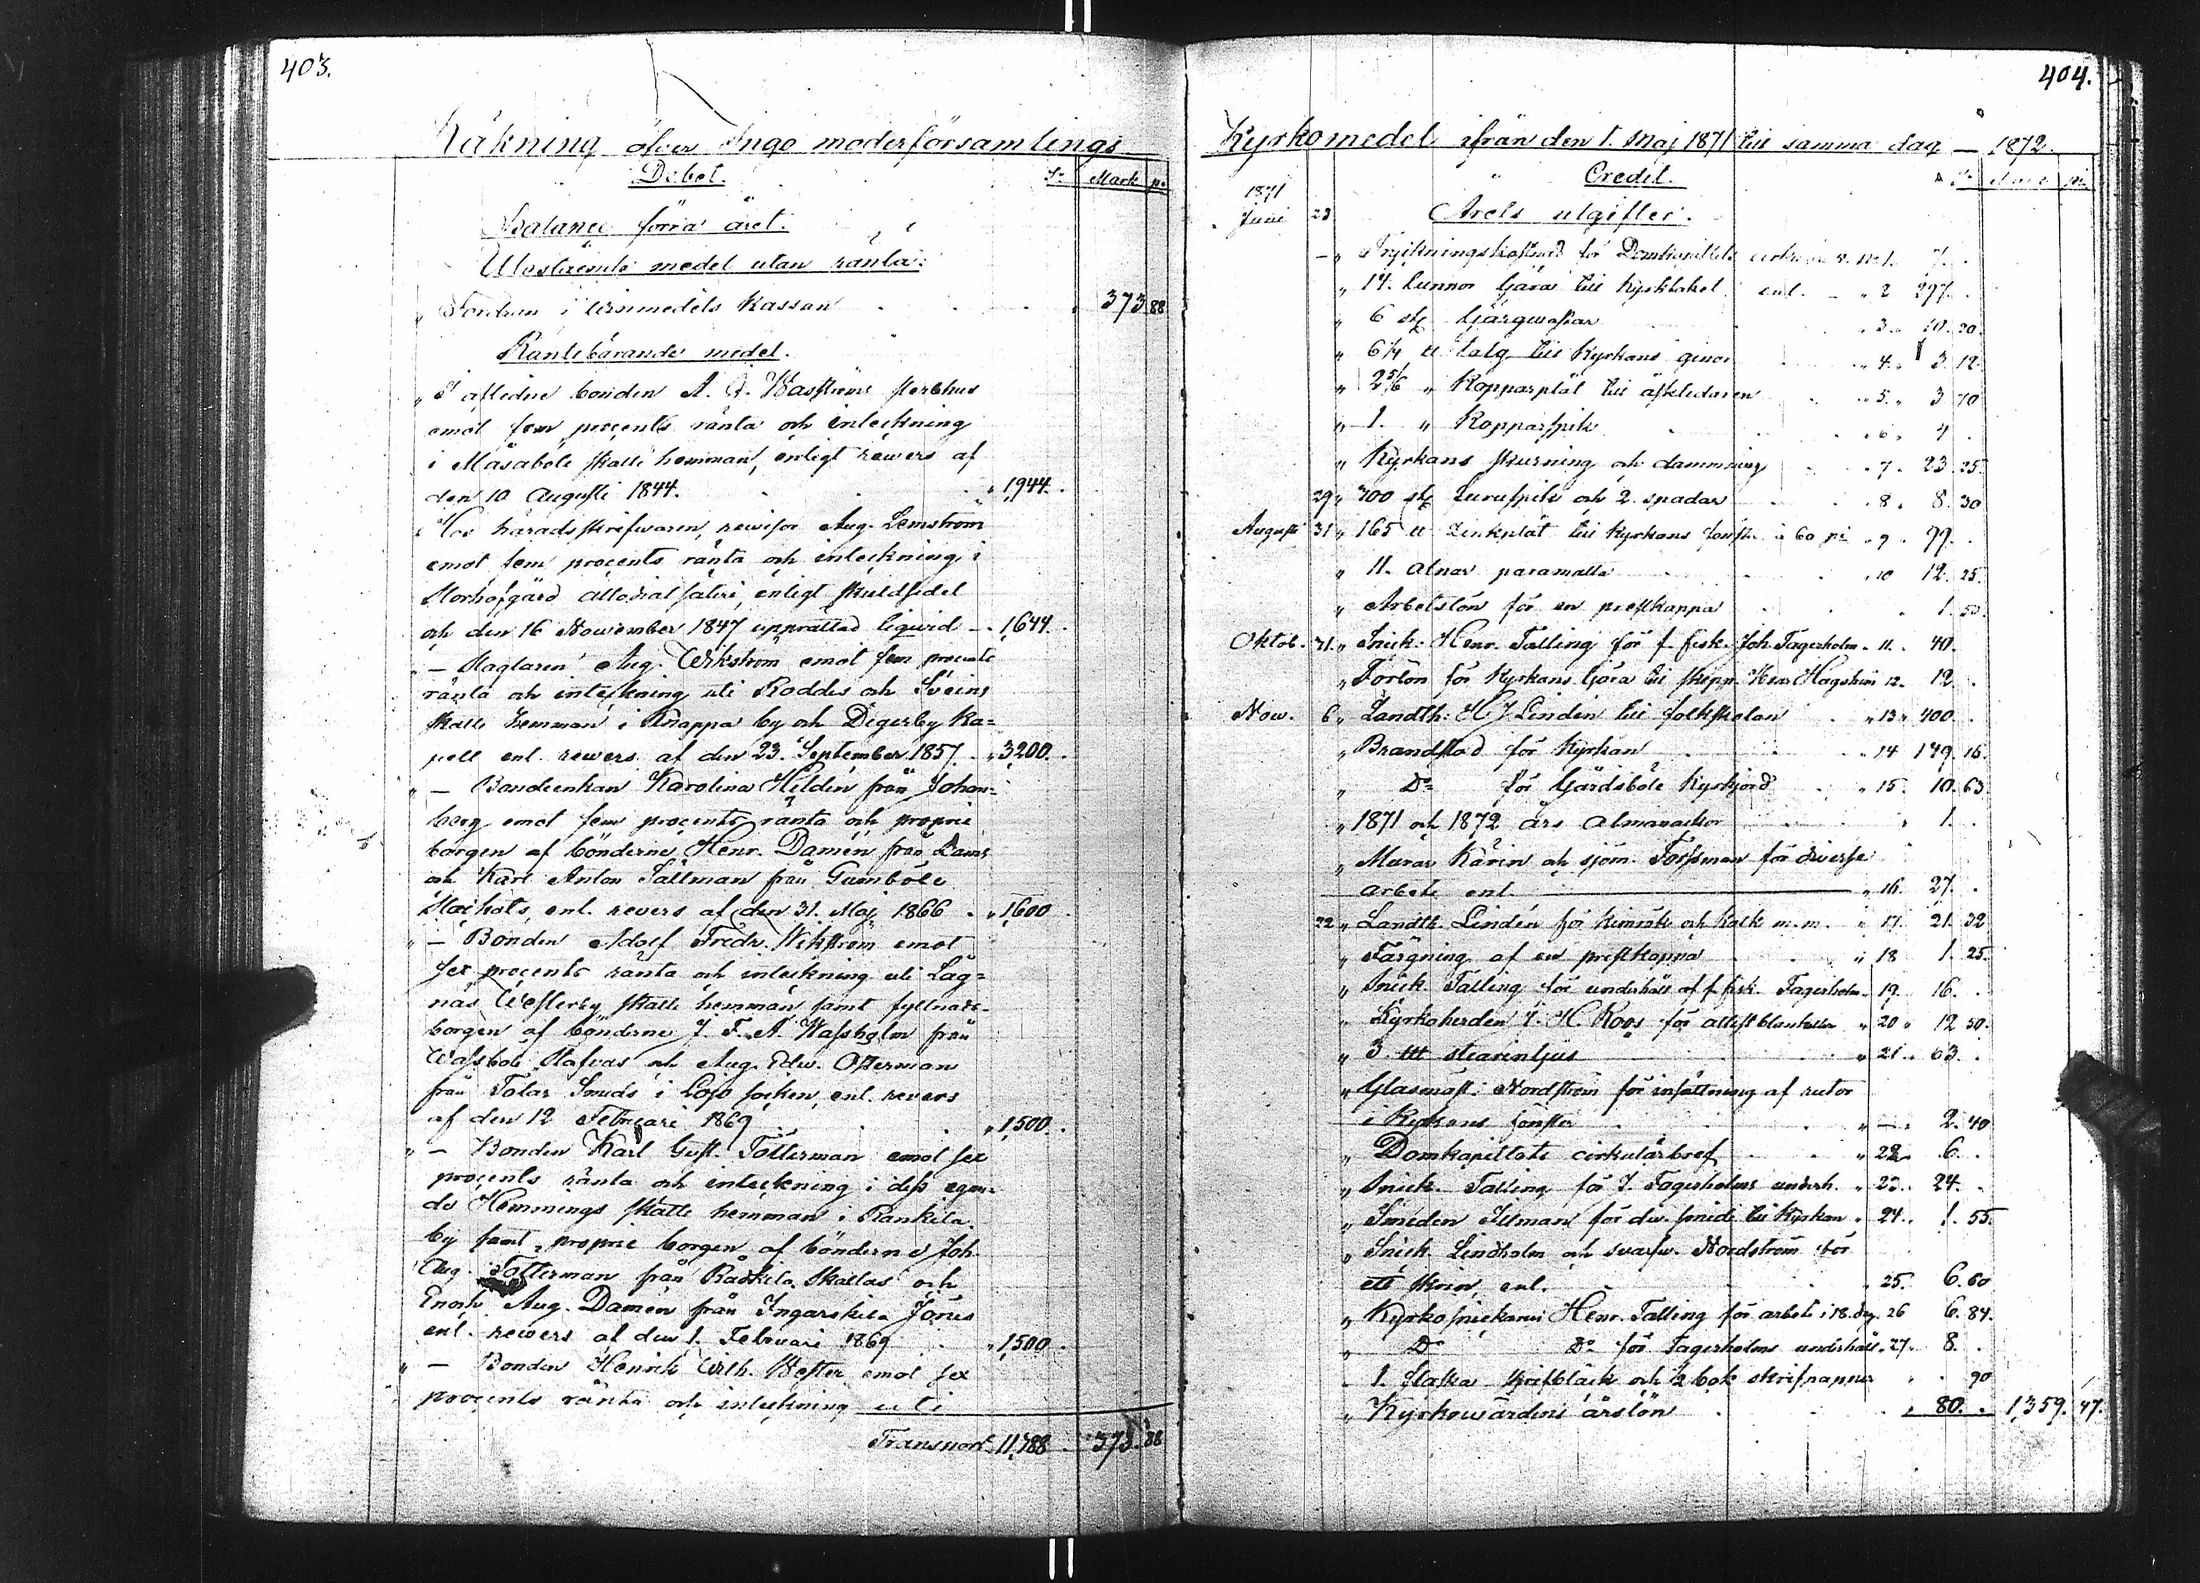 403.
Räkning öfver Ingo moderförsamlings
Debet.
Sr Mark p:
Balance förra året.
Utestående medel utan ränta:
" Fordran i arnmedels Kassan 373 88
Räntebärande medel.
" I aflidne bonden A. G. Wasströms sterbhus
emot fem procents ränta och inteckning
i Måsabole skatte hemman, enligt rewers af
den 10 Augusti 1844. " 1,944.
" Hos häradsskrifwaren, revisor Aug. Lemström
emot fem procents ränta och inteckning i
Storhofgård allodial säteri, enligt skuldsedel
och den 16 November 1847 upprättad liqvid " 1,644.
" — Slagtaren Aug. Wikström emot fem procents
ränta och inteckning uti Roddes och Sveins
skatte hemman i Knappa by och Degerby Ka=
pell enl. rewers af den 23 September 1857. " 3,200.
" — Bondeenkan Karolina Hildén från Johan=
berg emot fem procents ränta och proprie
borgen af bönderne Henr. Damén från Bams
och Karl Anton Sållman från Gumböle
enl. revers af den 31. Maj 1866 " 1,600
" — Bonden Adolf Fredr. Wikström emot
sex procents ränta och inteckning uti Låg=
näs Westerby skatte hemman samt fyllnads-
borgen af bönderne J. F. A. Wassholm från
Wassbole Stafvas och Aug. Edw. Österman
från Tolar Smeds i Lojo socken, enl. revers
af den 12 Februari 1869 " 1,500.
" — Bonden Karl Gust. Tötterman emot sex
procents ränta och inteckning i dess egan=
de Hemmings skatte hemman i Rankila
by samt proprie borgen af bönderne Joh.
Aug. Tötterman från Rådkila Skallas och
Enoch Aug. Damén från Ingarskila Jorus
enl. rewers af den 1. Februari 1869 " 1,500.
" — Bonden Henrik Wilh. Wester emot sex
procents ränta och inteckning uti
Transport 11,388 373. 88
404.
Kyrkomedel ifrån den 1. Maj 1871 till samma dag — 1872.
Credit.
1871
Juni 23 Årets utgifter.
—" Tryckningskostnad för Domkapitlets cirkulär v. No 1. 7.
" 17. tunnor tjära till Kyrktaket enl. — " 2 297.
" 6 st. tjärqwastar " 3. 10. 20.
" 6 1/4 tt talg till Kyrkans 4. 3 12.
" 2 5/6 " Kopparplåt till åskledaren " 5. 3 70
" 1. " Kopparspik " 6. 4.
" Kyrkans skurning och damning " 7. 23. 25.
29 " 700 st. turuspik och 2 spadar " 8. 8. 30
Augusti 31 " 165 tt Zinkplåt till Kyrkans à 60 pi " 9. 99.
" 11. alnar paramatta " 10 12. 25.
" Arbetslön för en prestkappa 1. 50
Oktob. 31. " Snick. Henr. Talling för f. fisk. Joh. Fagerholm " 11. 40.
" Förlön för Kyrkans tjära till skepp. Henr. Hagström 12. 12.
Nov. 6 " Landth: H. J. Lindén till folkskolan " 13 " 400.
" Brandstod för Kyrkan " 14 149. 16.
" Do för Gårdsböle Kyrkjord " 15. 10. 63.
" 1871 och 1872 års almanackor " 1.
" Murar Karin och sjöm. Forssman för diverse
arbete enl. " 16. 27.
22 " Landth. Lindén för kimrök och Kalk m. m. " 17. 21. 32
" Färgning af en prestkappa " 18 1. 25.
" Snick. Talling för underhåll af f. fisk. Fagerholm " 19. 16.
" Kyrkoherden J. H. Roos för attestblanketter " 20 " 12 50.
" 3 ttt stearinljus " 21. 63.
" Glasmäst: Nordström för insättning af rutor
i Kyrkans fönster " — 2. 40
" Domkapitlets cirkulärbref " 22. 6.
" Snick. Talling för J. Fagerholms underh. " 23. 24.
" Smeden Iltman för div. smide till Kyrkan " 24. 1. 55.
" Snick. Lindholm och svarfw. Nordström för
ett skrin, enl. 25. 6. 60
" Kyrkosnickaren Henr. Talling för arbete i 18. dag. 26 6. 84.
" Do Do för Fagerholms underhåll. 27. 8.
" 1. flaska skrifbläck och 1/2 bok skrifpapper " 90
" Kyrkowärdens årslön " 80. 1,359. 47.